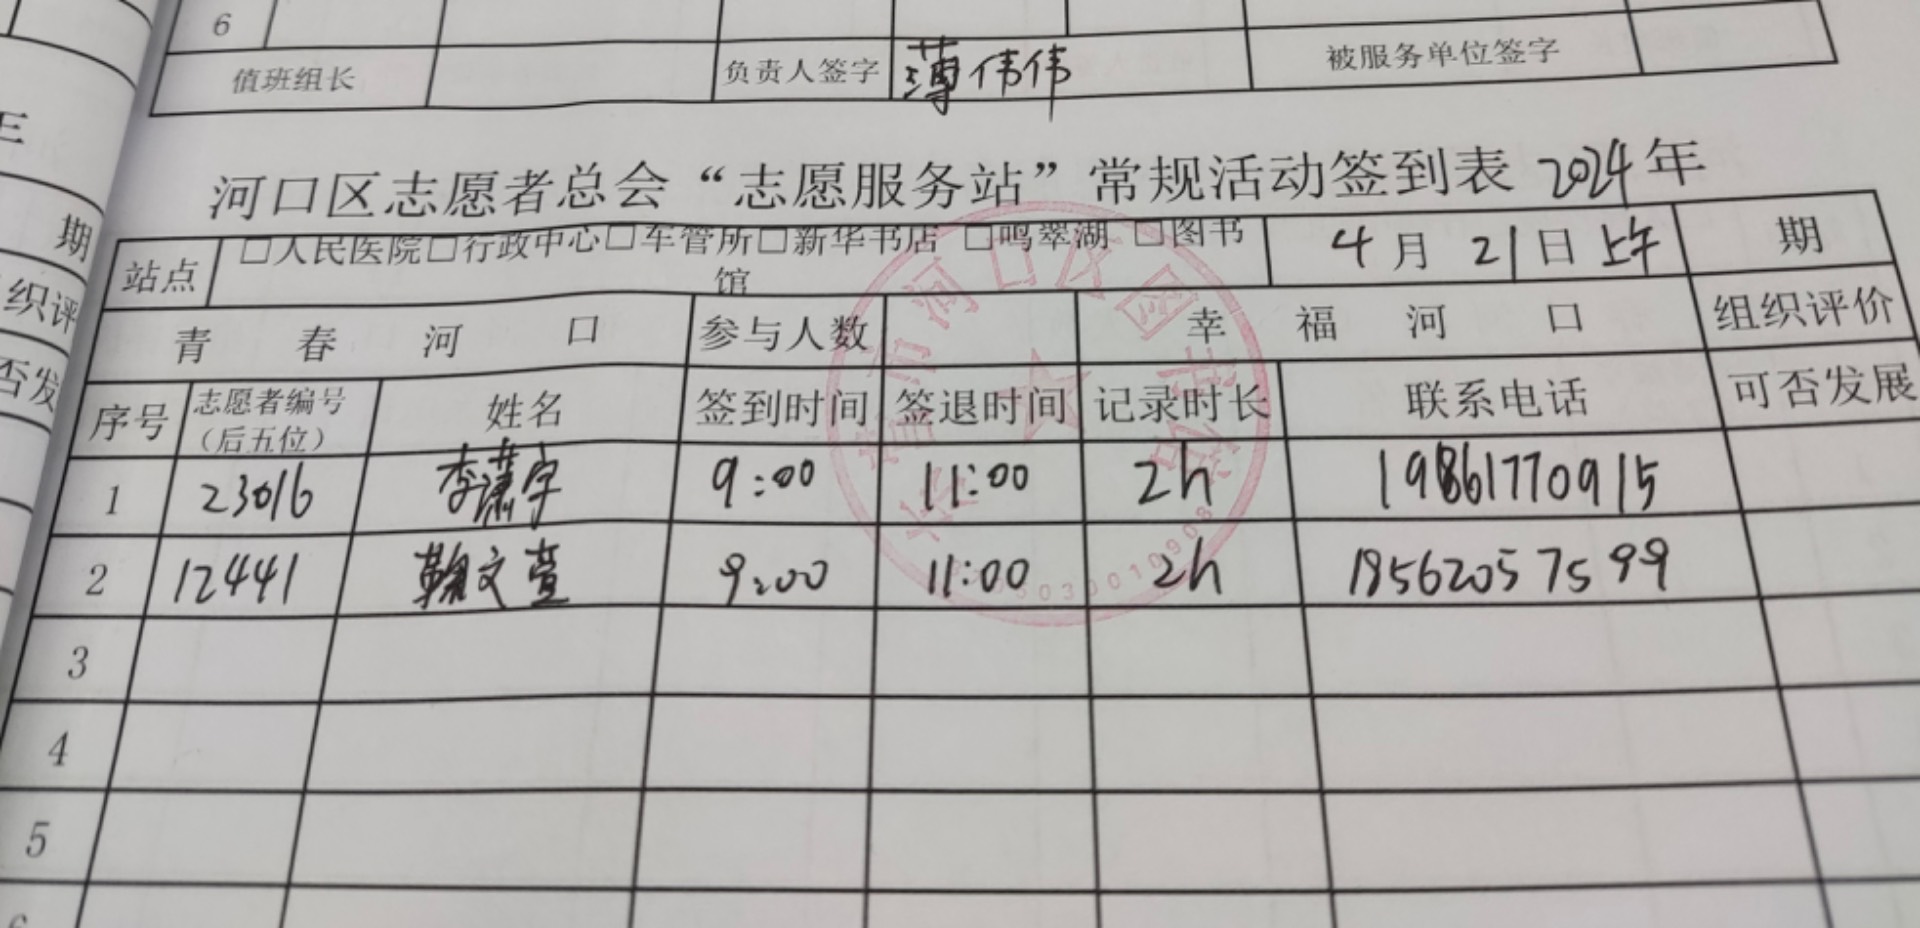 6
值班组长 负责人签字 薄伟伟 被服务单位签字
河口区志愿者总会“志愿服务站”常规活动签到表 2024年
站点 □人民医院□行政中心□车管所□新华书店 □鸣翠湖 □图书馆 4月21日上午 期
青春河口 参与人数 幸福河口 组织评价
序号 志愿者编号（后五位） 姓名 签到时间 签退时间 记录时长 联系电话 可否发展
1 23016 李潇宇 9:00 11:00 2h 19861770915
2 12441 鞠文萱 9:00 11:00 2h 18562057599
3
4
5
期
织评
否发